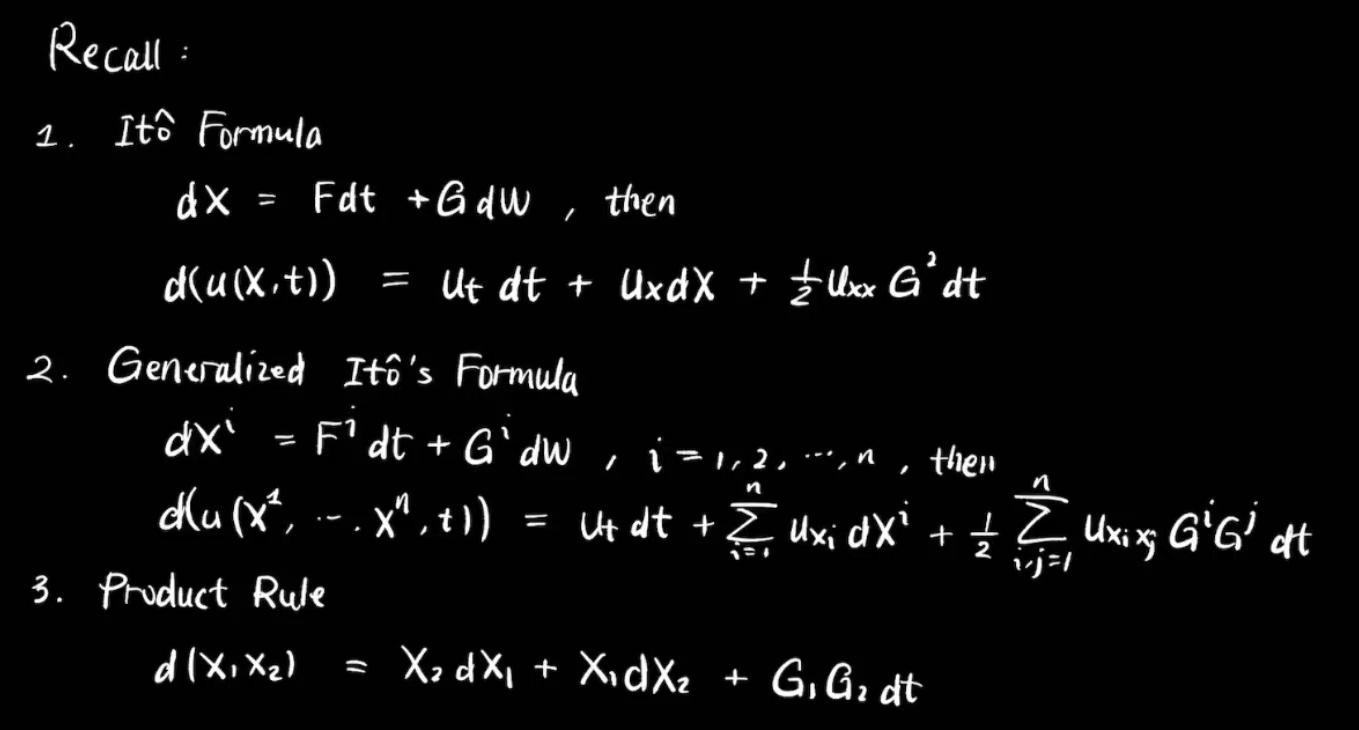 Recall :
1. Itô Formula
dX = Fdt + G dW , then
d(u(X,t)) = u_t dt + u_x dX + 1/2 u_xx G² dt
2. Generalized Itô's Formula
dX^i = F^i dt + G^i dW , i = 1, 2, ..., n , then
d(u(X^1, ..., X^n, t)) = u_t dt + ∑_{i=1}^{n} u_{x_i} dX^i + 1/2 ∑_{i,j=1}^{n} u_{x_i x_j} G^i G^j dt
3. Product Rule
d(X₁X₂) = X₂ dX₁ + X₁ dX₂ + G₁ G₂ dt